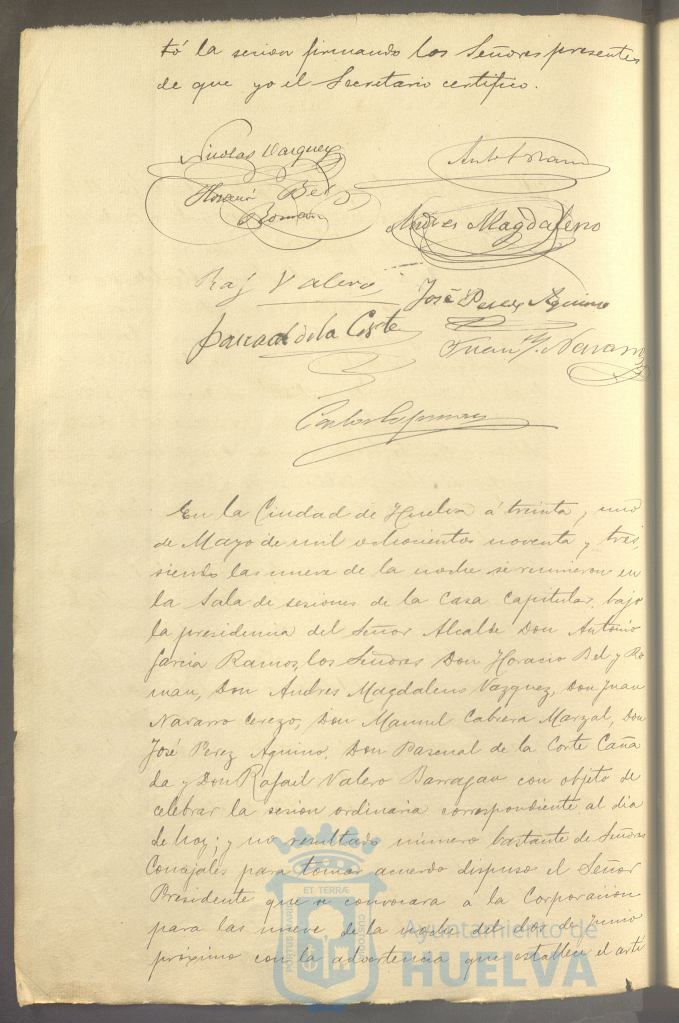 tó la sesion firmando los Señores presentes
de que yo el Secretario certifico.
Nicolas Vazquez
Horacio Bel
Roman
Andres Magdaleno
Raf Valero
José Perez Aquino
Pascual de la Corte
Juan Navarro
En la Ciudad de Huelva á treinta y uno
de Mayo de mil ochocientos noventa y tres,
siendo las nueve de la noche se reunieron en
la Sala de sesiones de la Casa Capitular, bajo
la presidencia del Señor Alcalde Don Antonio
Garcia Ramos, los Señores Don Horacio Bel y Ro
man, Don Andres Magdaleno Vazquez, Don Juan
Navarro Cerezo, Don Manuel Cabrera Marzal, Don
José Perez Aquino, Don Pascual de la Corte Caña
da y Don Rafael Valero Barragan con objeto de
celebrar la sesion ordinaria correspondiente al dia
de hoy; y no resultado número bastante de Señores
Concejales para tomar acuerdo dispuso el Señor
Presidente que se convocara a la Corporacion
para las nueve de la noche del dos de Junio
próximo con la advertencia que establece el arti
Ayuntamiento de
HUELVA